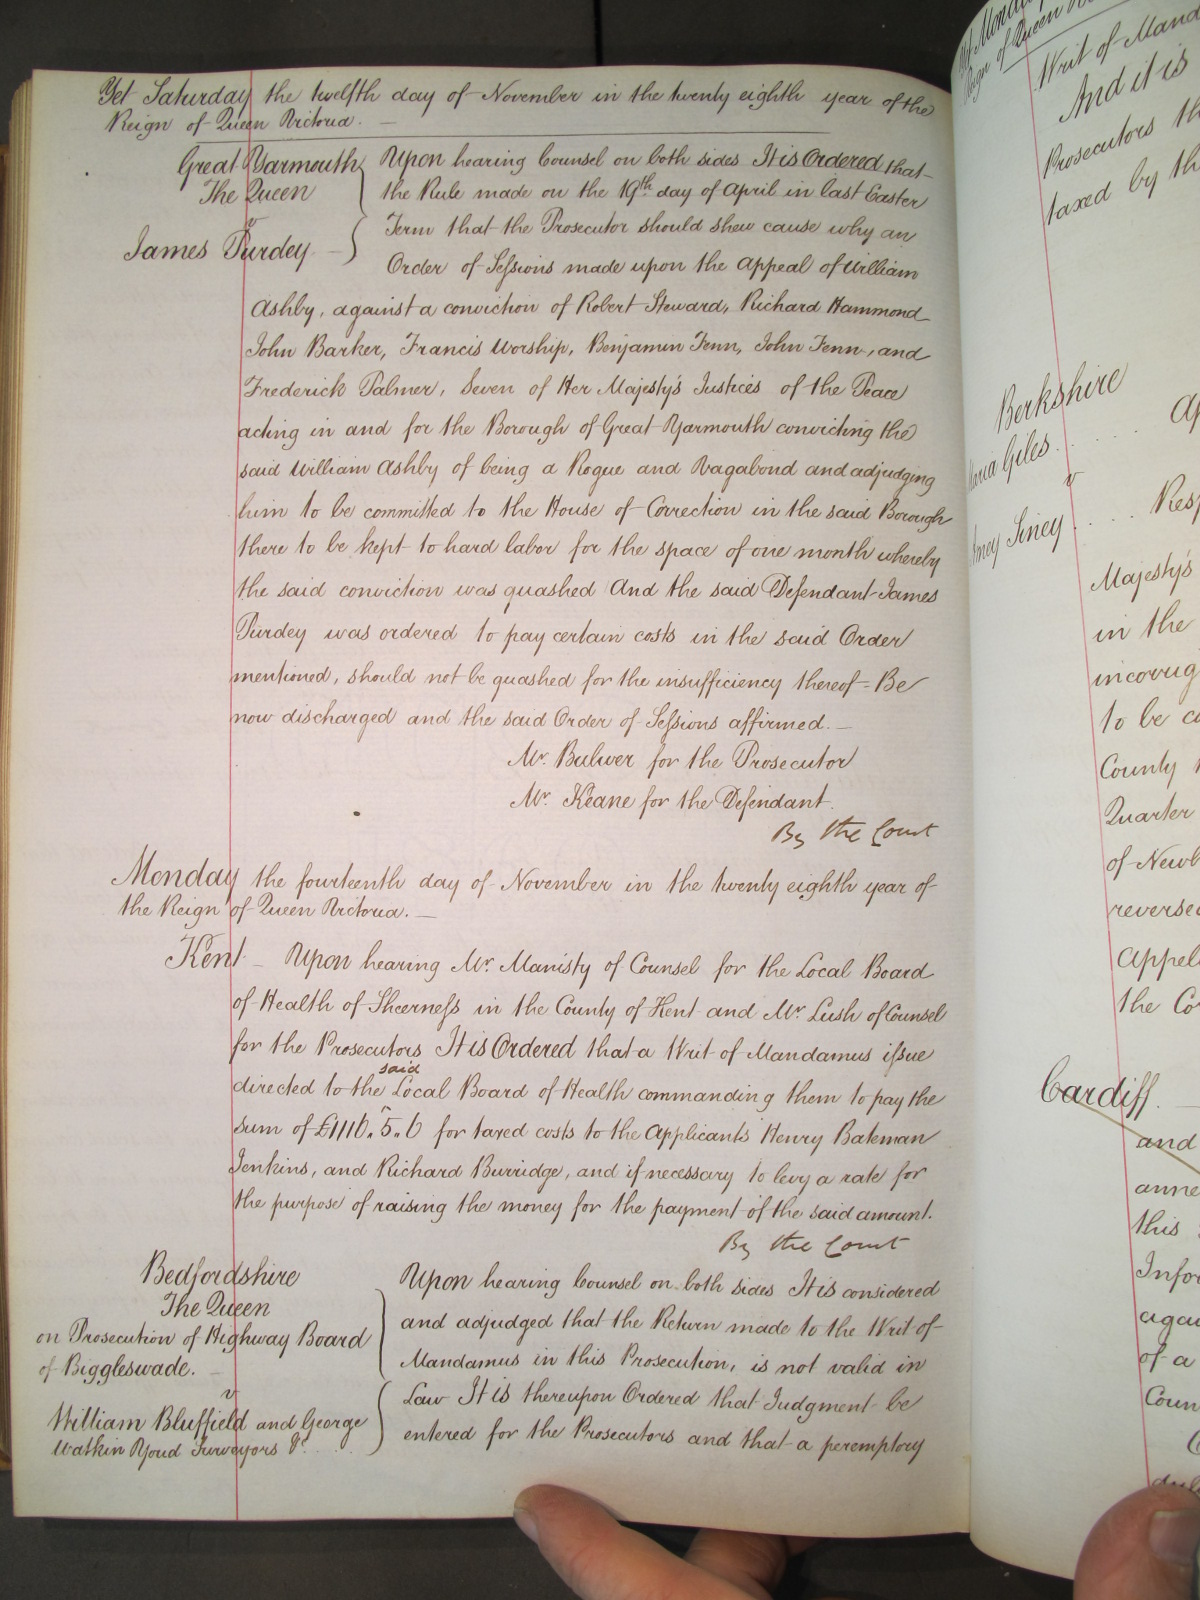 Yet Saturday the twelfth day of November in the twenty eighth year of the
Reign of Queen Victoria.
Great Yarmouth
The Queen
v
James Purdey
Upon hearing Counsel on both sides It is Ordered that
the Rule made on the 19th day of April in last Easter
Term that the Prosecutor should shew cause why an
Order of Sessions made upon the Appeal of William
Ashby, against a conviction of Robert Steward, Richard Hammond
John Barker, Francis Worship, Benjamin Fenn, John Fenn, and
Frederick Palmer, Seven of Her Majesty's Justices of the Peace
acting in and for the Borough of Great Yarmouth convicting the
said William Ashby of being a Rogue and Vagabond and adjudging
him to be committed to the House of Correction in the said Borough
there to be kept to hard labor for the space of one month whereby
the said conviction was quashed And the said Defendant James
Purdey was ordered to pay certain costs in the said Order
mentioned, should not be quashed for the insufficiency thereof - Be
now discharged and the said Order of Sessions affirmed. —
Mr. Bulwer for the Prosecutor
Mr. Keane for the Defendant.
By the Court
Monday the fourteenth day of November in the twenty eighth year of
the Reign of Queen Victoria. —
Kent — Upon hearing Mr. Manisty of Counsel for the Local Board
of Health of Sheerness in the County of Kent and Mr. Lush of Counsel
for the Prosecutors It is Ordered that a Writ of Mandamus issue
said
directed to the Local Board of Health commanding them to pay the
sum of £1116.. 5.. 6 for taxed costs to the Applicants Henry Bateman
Jenkins, and Richard Burridge, and if necessary to levy a rate for
the purpose of raising the money for the payment of the said amount.
By the Court
Bedfordshire
The Queen
on Prosecution of Highway Board
of Biggleswade.
v
William Bluffield and George
Watkin Youd Surveyors &c
Upon hearing Counsel on both sides It is considered
and adjudged that the Return made to the Writ of
Mandamus in this Prosecution, is not valid in
Law It is thereupon Ordered that Judgment be
entered for the Prosecutors and that a peremptory
Writ of Mand
And it is
Prosecutors th
taxed by th
Berkshire
Giles
v
Siney
Ap
Resp
Majesty's
in the
incorrig
to be co
County
Quarter
of Newb
reversed
Appell
the Co
Cardiff. —
and
anne
this
Infor
again
of a
Coun